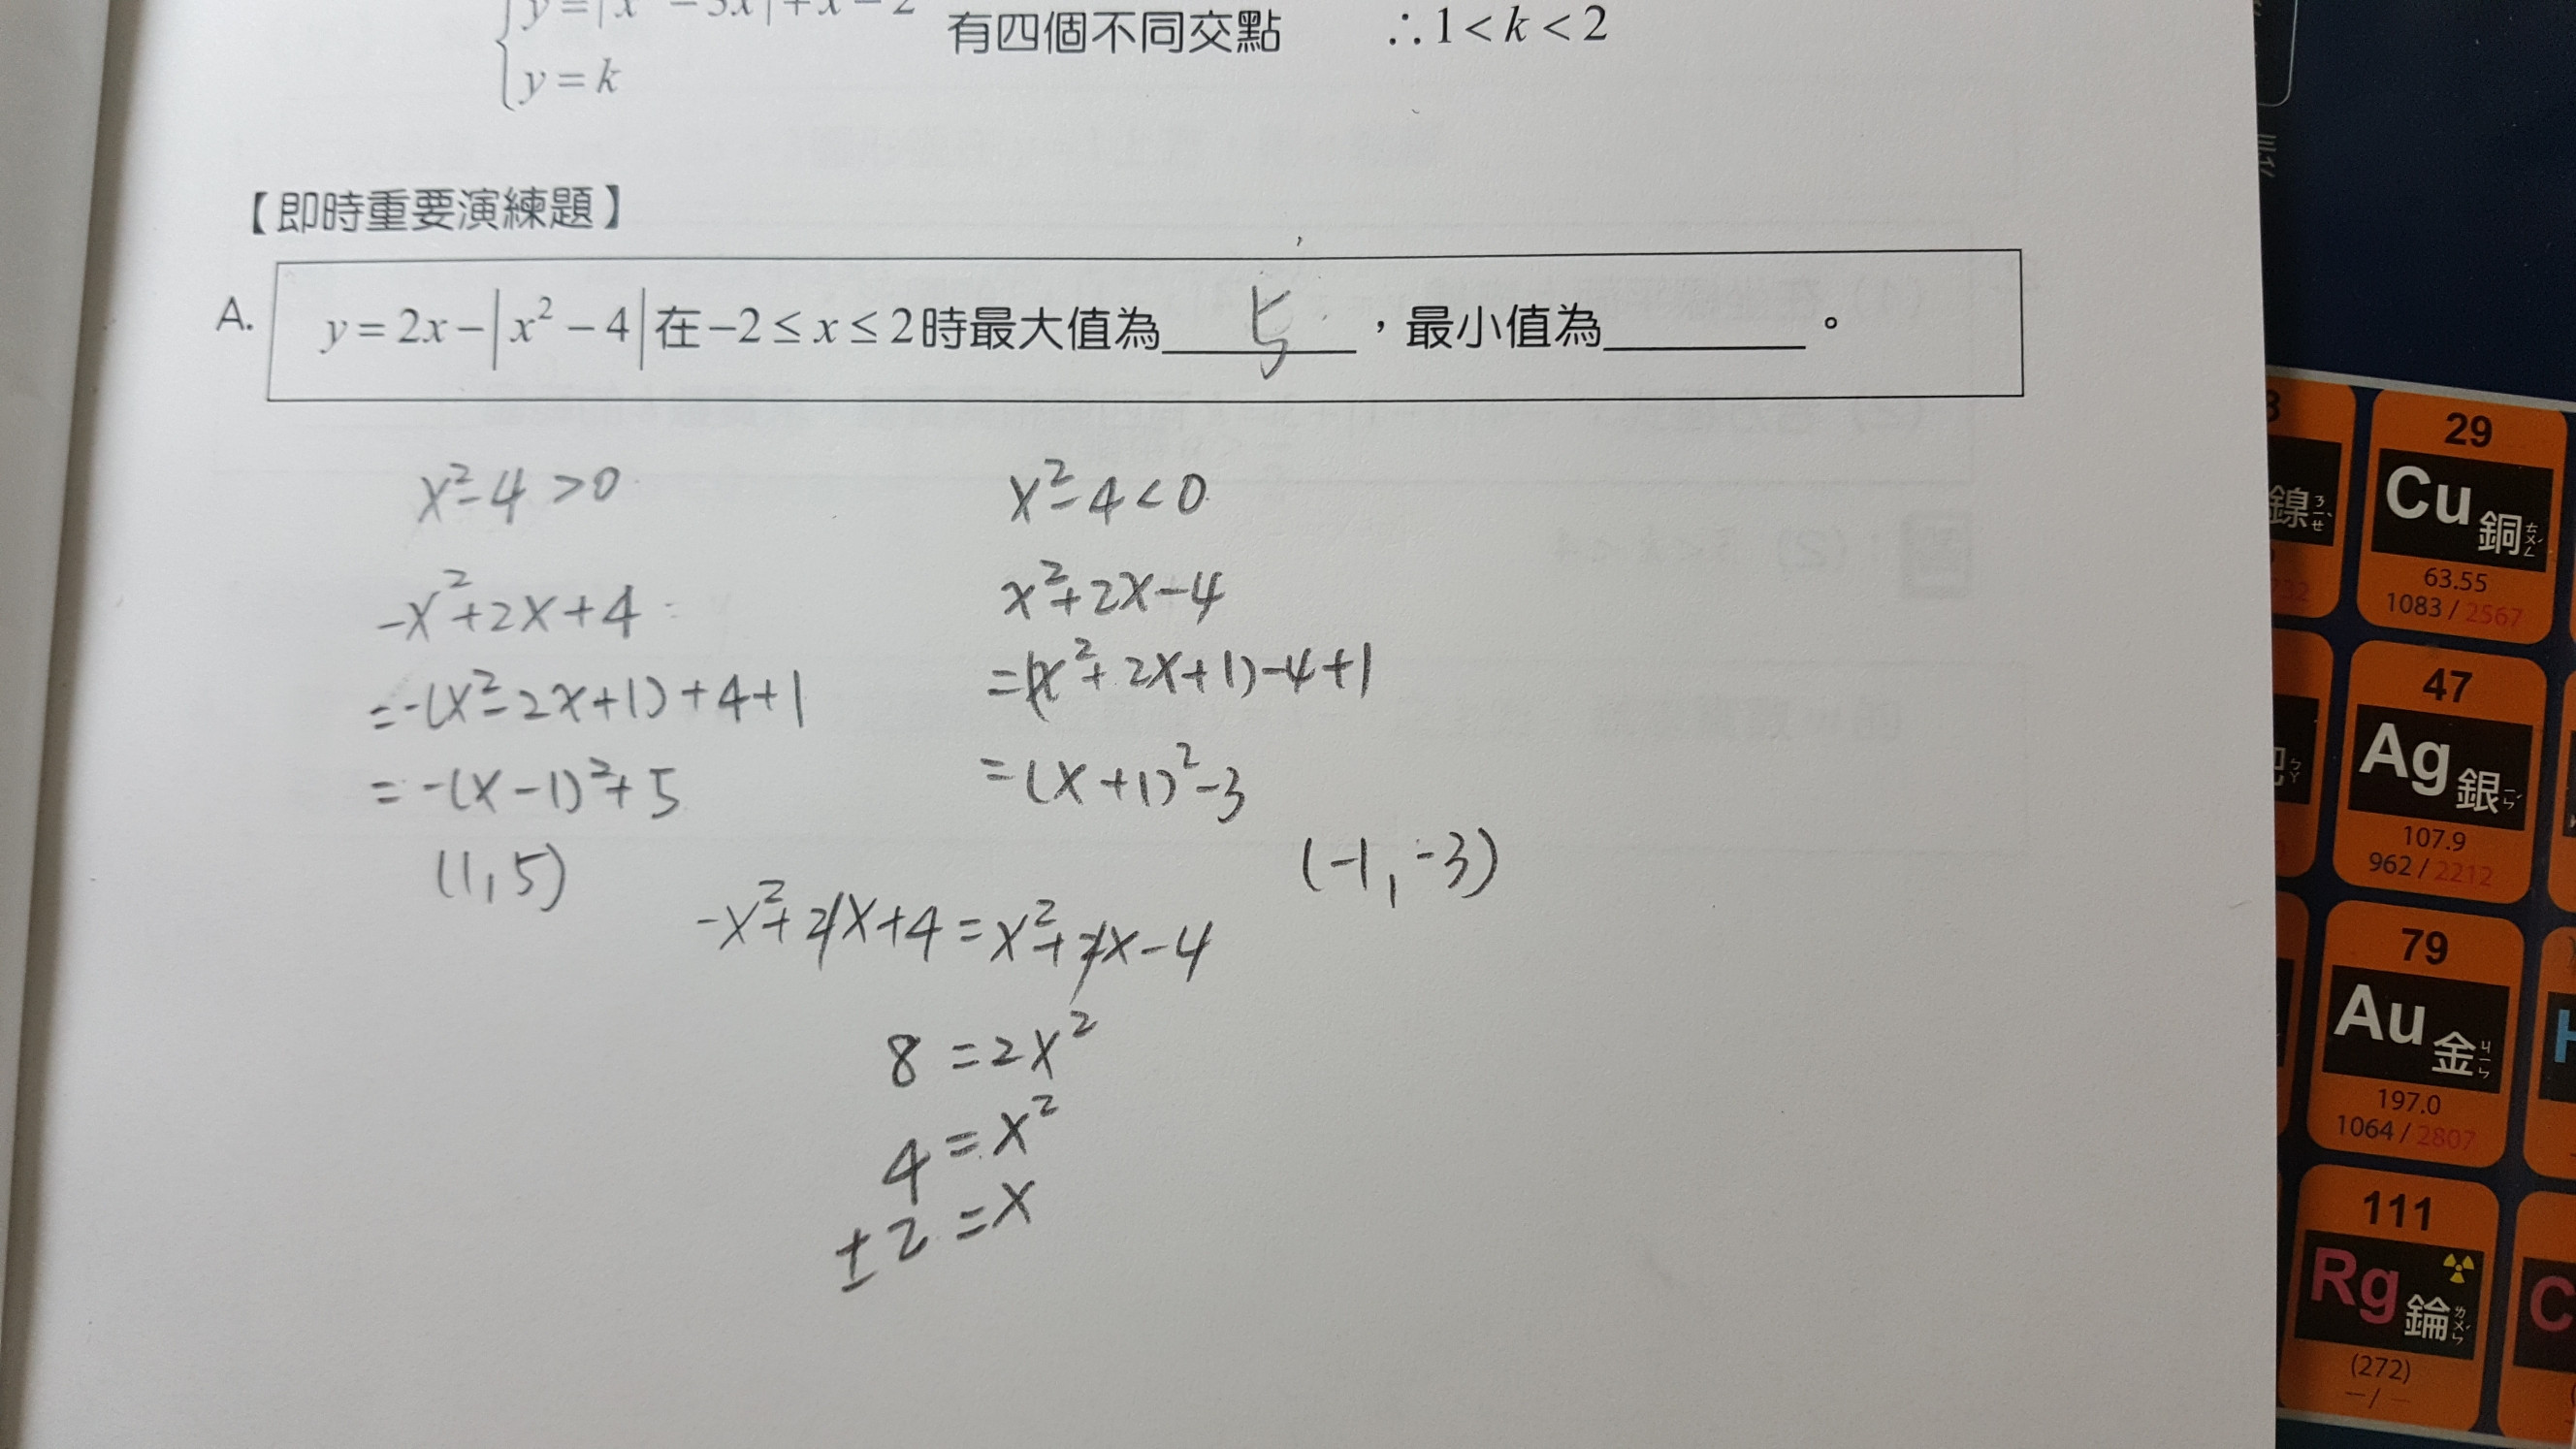 y = k
有四個不同交點 ∴1 < k < 2
【即時重要演練題】
A. y = 2x − | x² − 4 | 在 −2 ≤ x ≤ 2 時最大值為 5 ，最小值為______。
x²-4 >0
-x²+2x+4
=-(x²-2x+1)+4+1
=-(x-1)²+5
(1,5)
x²-4<0
x²+2x-4
=(x²+2x+1)-4+1
=(x+1)²-3
(-1,-3)
-x²+2x+4=x²+2x-4
8=2x²
4=x²
±2=x
29
Cu 銅 ㄊㄨㄥˊ
63.55
1083 / 2567
鎳 ㄋㄧㄝˋ
47
Ag 銀 ㄧㄣˊ
107.9
962 / 2212
79
Au 金 ㄐㄧㄣ
197.0
1064 / 2807
111
Rg 錀 ㄌㄨㄣˊ
(272)
—/—